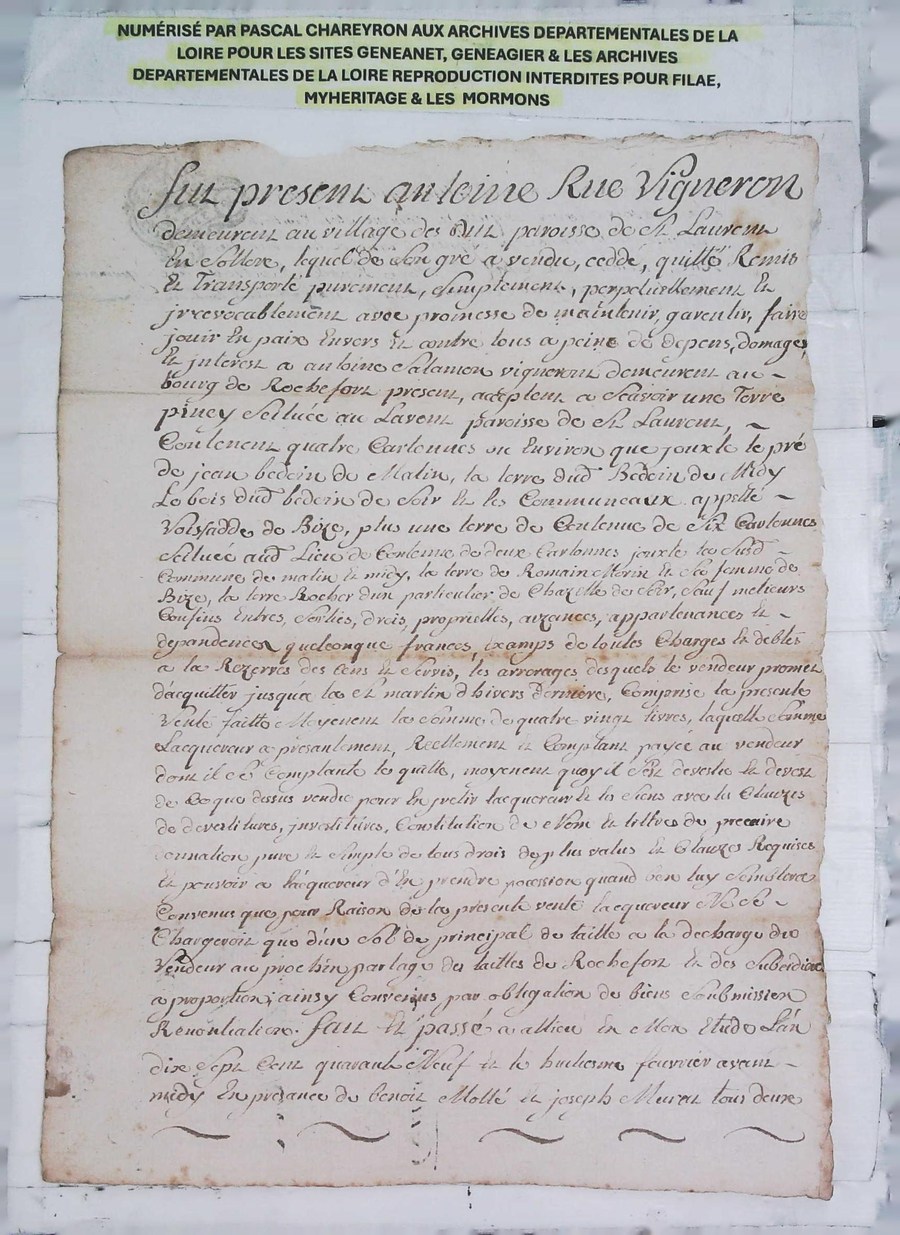 NUMÉRISÉ PAR PASCAL CHAREYRON AUX ARCHIVES DEPARTEMENTALES DE LA
LOIRE POUR LES SITES GENEANET, GENEAGIER & LES ARCHIVES
DEPARTEMENTALES DE LA LOIRE REPRODUCTION INTERDITES POUR FILAE,
MYHERITAGE & LES MORMONS
fut present antoine Rue Vigneron
demeurent au village des paroisse de St Laurent
En Sollore, lequel de son gré a vendu, cedde, quitté Remis
Et Transporté purement, simplement, perpetuellement Et
jrrevocablement avec promesse de maintenir, garentir, faire
jouir En paix Envers Et contre tous a peine de depens, domages,
Et jnterest a antoine Salamon vigneron demeurent au
bourg de Rochefort present, acceptent a scavoir une Terre
piney scituée au Lavent paroisse de St Laurent,
Contenent quatre Cartonnes ou Environ que jouxte le pré
de jean bedoin de Matin, la terre dud Bedoin de Midy
Le bois dud bedoin de soir Et les Communeaux appellé
de Bize, plus une terre de Contenue de six Cartonnes
scituée aud Lieu de Contenue de deux Cartonnes jouxte les susd
Commune de matin Et midy, la terre de Romain Morin Et sa femme de
Bize, la terre Rocher d'un particulier de Chazelle de soir, sauf melieurs
Confins Entrés, sorties, drois, proprietés, auzances, appartenances Et
dependences quelconque francos, Exemps de toutes Charges Et debtes
a la Rezerves des Cens Et servis, les arrerages desquels le vendeur promet
d'acquitter jusqu'a la St martin d'hivers derniere, Comprise la presente
Vente faitte Moyenent la somme de quatre vingt livres, laquelle somme
Lacquereur a presantement, Reellement Et Comptant payée au vendeur
dont il se Comptante le quitte, moyenent quoy il s'est devestu Et devest
de Ce que dessus vendu pour En vetir lacquereur Et les siens avec les Clauzes
de devestitures, jnvestitures, Constitution de Nom Et tittre de precaire
donnation pure Et simple de tous drois de plus valus Et Clauzes Requises
Et pouvoir a l'acquereur d'En prendre pocession quand bon luy semblera
Convenus que pour Raison de la presente vente lacquereur Ne se
Chargeroit que d'un sol de principal de taille a la decharge du
Vendeur au prochin partage des tailles de Rochefort Et des
a proportion, ainsy Convenus par obligation de biens soubmission
Renontiation. fait Et passé a allieu En Mon Etude L'an
dix sept Cent quarante Neuf Et le huitieme fevrier avant
midy En presance de benoit Mollé Et joseph Murat tous deux